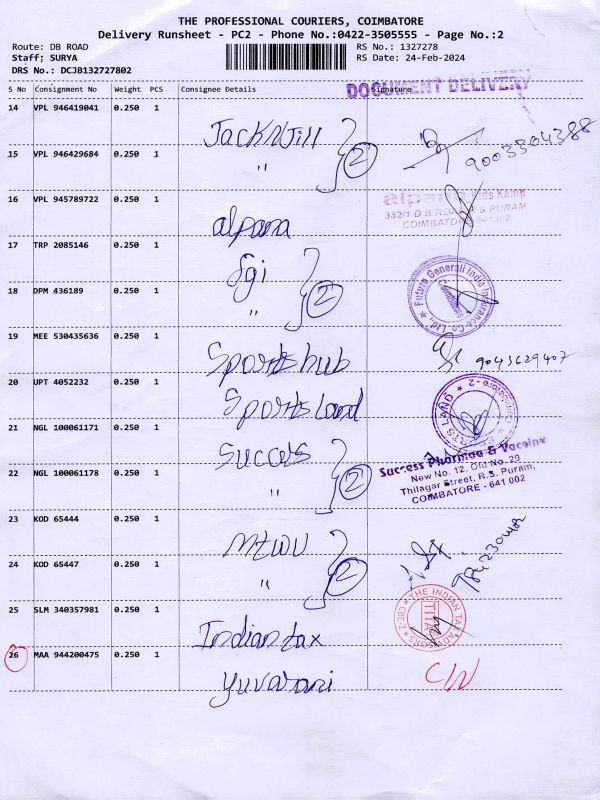 THE PROFESSIONAL COURIERS, COIMBATORE
Delivery Runsheet - PC2 - Phone No.:0422-3505555 - Page No.:2
Route: DB ROAD RS No.: 1327278
Staff; SURYA RS Date: 24-Feb-2024
DRS No.: DCJB132727802
DOCUMENT DELIVERY
S No Consignment No Weight PCS Consignee Details Signature
14 VPL 946419041 0.250 1 Jack N Jill 2 9003504388
15 VPL 946429684 0.250 1 "
16 VPL 945789722 0.250 1 alpana
Kids Kamp
382/1 D.B.ROAD, R S PURAM
COIMBATORE
17 TRP 2085146 0.250 1 fgi 2
Future Generali India Insurance Co. Ltd.,
18 DPM 436189 0.250 1 "
19 MEE 530435636 0.250 1 Sports hub 9043629407
20 UPT 4052232 0.250 1 Sports Land
21 NGL 100061171 0.250 1 Success 2
Success Pharmaa & Vaccine
New No. 12, Old No. 29
Thilagar Street, R.S. Puram,
COIMBATORE - 641 002
22 NGL 100061178 0.250 1 "
23 KOD 65444 0.250 1 2
24 KOD 65447 0.250 1 "
25 SLM 340357981 0.250 1 Indian tax
THE INDIAN TAX ADVISORS
TITA
CBE-2
26 MAA 944200475 0.250 1 Yuvarani C/N